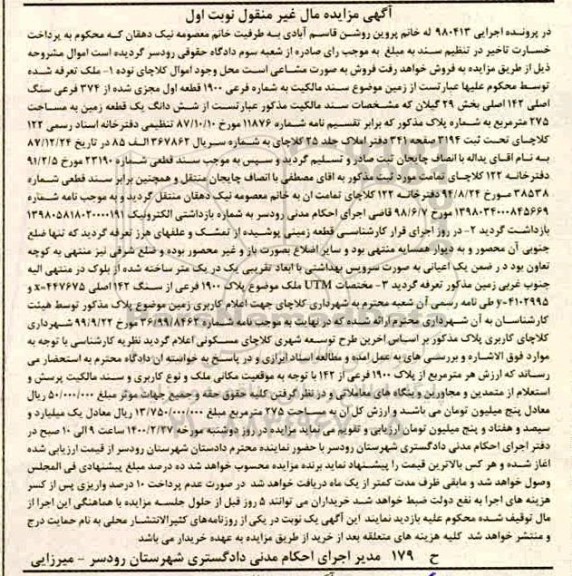 آگهی مزایده مال غیر منقول نوبت اول
در پرونده اجرایی ۹۸۰۴۱۳ له خانم پروین روشن قاسم آبادی به طرفیت خانم معصومه نیک دهقان که محکوم به پرداخت
خسارت تاخیر در تنظیم سند به مبلغ به موجب رای صادره از شعبه سوم دادگاه حقوقی رودسر گردیده است اموال مشروحه
ذیل از طریق مزایده به فروش خواهد رفت فروش به صورت مشاعی است محل وجود اموال کلاچای نوده ۱- ملک تعرفه شده
توسط محکوم علیها عبارتست از زمین موضوع سند مالکیت به شماره فرعی ۱۹۰۰ قطعه اول مجزی شده از ۳۷۴ فرعی سنگ
اصلی ۱۴۲ اصلی بخش ۲۹ گیلان که مشخصات سند مالکیت مذکور عبارتست از شش دانگ یک قطعه زمین به مساحت
۲۷۵ مترمربع به شماره پلاک مذکور که برابر تقسیم نامه شماره ۱۱۸۷۶ مورخ ۸۷/۱۰/۱۰ تنظیمی دفترخانه اسناد رسمی ۱۲۲
کلاچای تحت ثبت ۴۱۹۴ صفحه ۳۴۱ دفتر املاک جلد ۲۵ کلاچای به شماره سریال ۳۶۷۸۶۲ الف ۸۵ در تاریخ ۸۷/۱۲/۲۴
به نام آقای یداله با انصاف چایجان ثبت صادر و تسلیم گردید و سپس به موجب سند قطعی شماره ۲۳۱۹۰ مورخ ۹۱/۲/۵
دفترخانه ۱۲۲ کلاچای تمامت مورد ثبت مذکور به آقای مصطفی با انصاف چایجان منتقل و همچنین برابر سند قطعی شماره
۳۸۵۳۸ مورخ ۹۴/۸/۲۴ دفترخانه ۱۲۲ کلاچای تمامت آن به خانم معصومه نیک دهقان منتقل گردید و به موجب نامه شماره
۱۳۹۸۰۳۴۰۰۰۸۴۵۶۶۹ مورخ ۹۸/۶/۷ قاضی اجرای احکام مدنی رودسر به شماره بازداشتی الکترونیک ۱۳۹۸۰۵۸۱۸۰۲۰۰۰۰۱۹۱
بازداشت گردید ۲- در روز اجرای قرار کارشناسی قطعه زمینی پوشیده از تمشک و علفهای هرز تعرفه گردید که تنها ضلع
جنوبی آن محصور و به دیوار همسایه منتهی بود و سایر اضلاع بصورت باز و غیر محصور بوده و ضلع شرقی نیز منتهی به کوچه
تعاون بود در ضمن یک اعیانی به صورت سرویس بهداشتی با ابعاد تقریبی یک در یک متر ساخته شده از بلوک در منتهی الیه
جنوب غربی زمین مذکور تعرفه گردید ۳- مختصات UTM ملک موضوع پلاک ۱۹۰۰ فرعی از سنگ ۱۴۲ اصلی x=۴۴۷۶۷۵ و
y=۴۱۰۲۹۹۵ طی نامه رسمی آن شعبه محترم به شهرداری کلاچای جهت اعلام کاربری زمین موضوع پلاک مذکور توسط هیئت
کارشناسان به آن شهرداری محترم ارائه شده که در نهایت به موجب نامه شماره ۳۶/۹۹/۸۴۶۲ مورخ ۹۹/۹/۲۲ شهرداری
کلاچای کاربری پلاک مذکور بر اساس آخرین طرح توسعه شهری کلاچای مسکونی اعلام گردید نظریه کارشناسی با توجه به
موارد فوق الاشاره و بررسی های به عمل آمده و مطالعه اسناد ابرازی و در پاسخ به خواسته آن دادگاه محترم به استحضار می
رساند که ارزش هر مترمربع از پلاک ۱۹۰۰ فرعی از ۱۴۲ با توجه به موقعیت مکانی ملک و نوع کاربری و سند مالکیت پرسش و
استعلام از معتمدین و مجاورین و بنگاه های معاملاتی و در نظر گرفتن کلیه حقوق حقه و جمیع جهات موثر مبلغ ۵۰/۰۰۰/۰۰۰ ریال
معادل پنج میلیون تومان می باشد و ارزش کل آن به مساحت ۲۷۵ مترمربع مبلغ ۱۳/۷۵۰/۰۰۰/۰۰۰ ریال معادل یک میلیارد و
سیصد و هفتاد و پنج میلیون تومان ارزیابی و تقویم می نماید مزایده در روز دوشنبه مورخه ۱۴۰۰/۲/۲۷ ساعت ۹ الی ۱۰ صبح در
دفتر اجرای احکام مدنی دادگستری شهرستان رودسر با حضور نماینده محترم دادستان شهرستان رودسر از قیمت ارزیابی شده
آغاز شده و هر کس بالاترین قیمت را پیشنهاد نماید برنده مزایده محسوب خواهد شد ده درصد مبلغ پیشنهادی فی المجلس
وصول خواهد شد و مابقی ظرف مدت کمتر از یک ماه دریافت خواهد شد در صورت عدم پرداخت ۱۰ درصد واریزی پس از کسر
هزینه های اجرا به نفع دولت ضبط خواهد شد خریداران می توانند ۵ روز قبل از حلول جلسه مزایده با هماهنگی این اجرا از
مال توقیف شده محکوم علیه بازدید نمایند این آگهی یک نوبت در یکی از روزنامه‌های کثیرالانتشار محلی به نام حمایت درج
و منتشر خواهد شد کلیه هزینه های متعلقه بعد از خرید از طریق مزایده به عهده خریدار می باشد
ح ۱۷۹ مدیر اجرای احکام مدنی دادگستری شهرستان رودسر - میرزایی